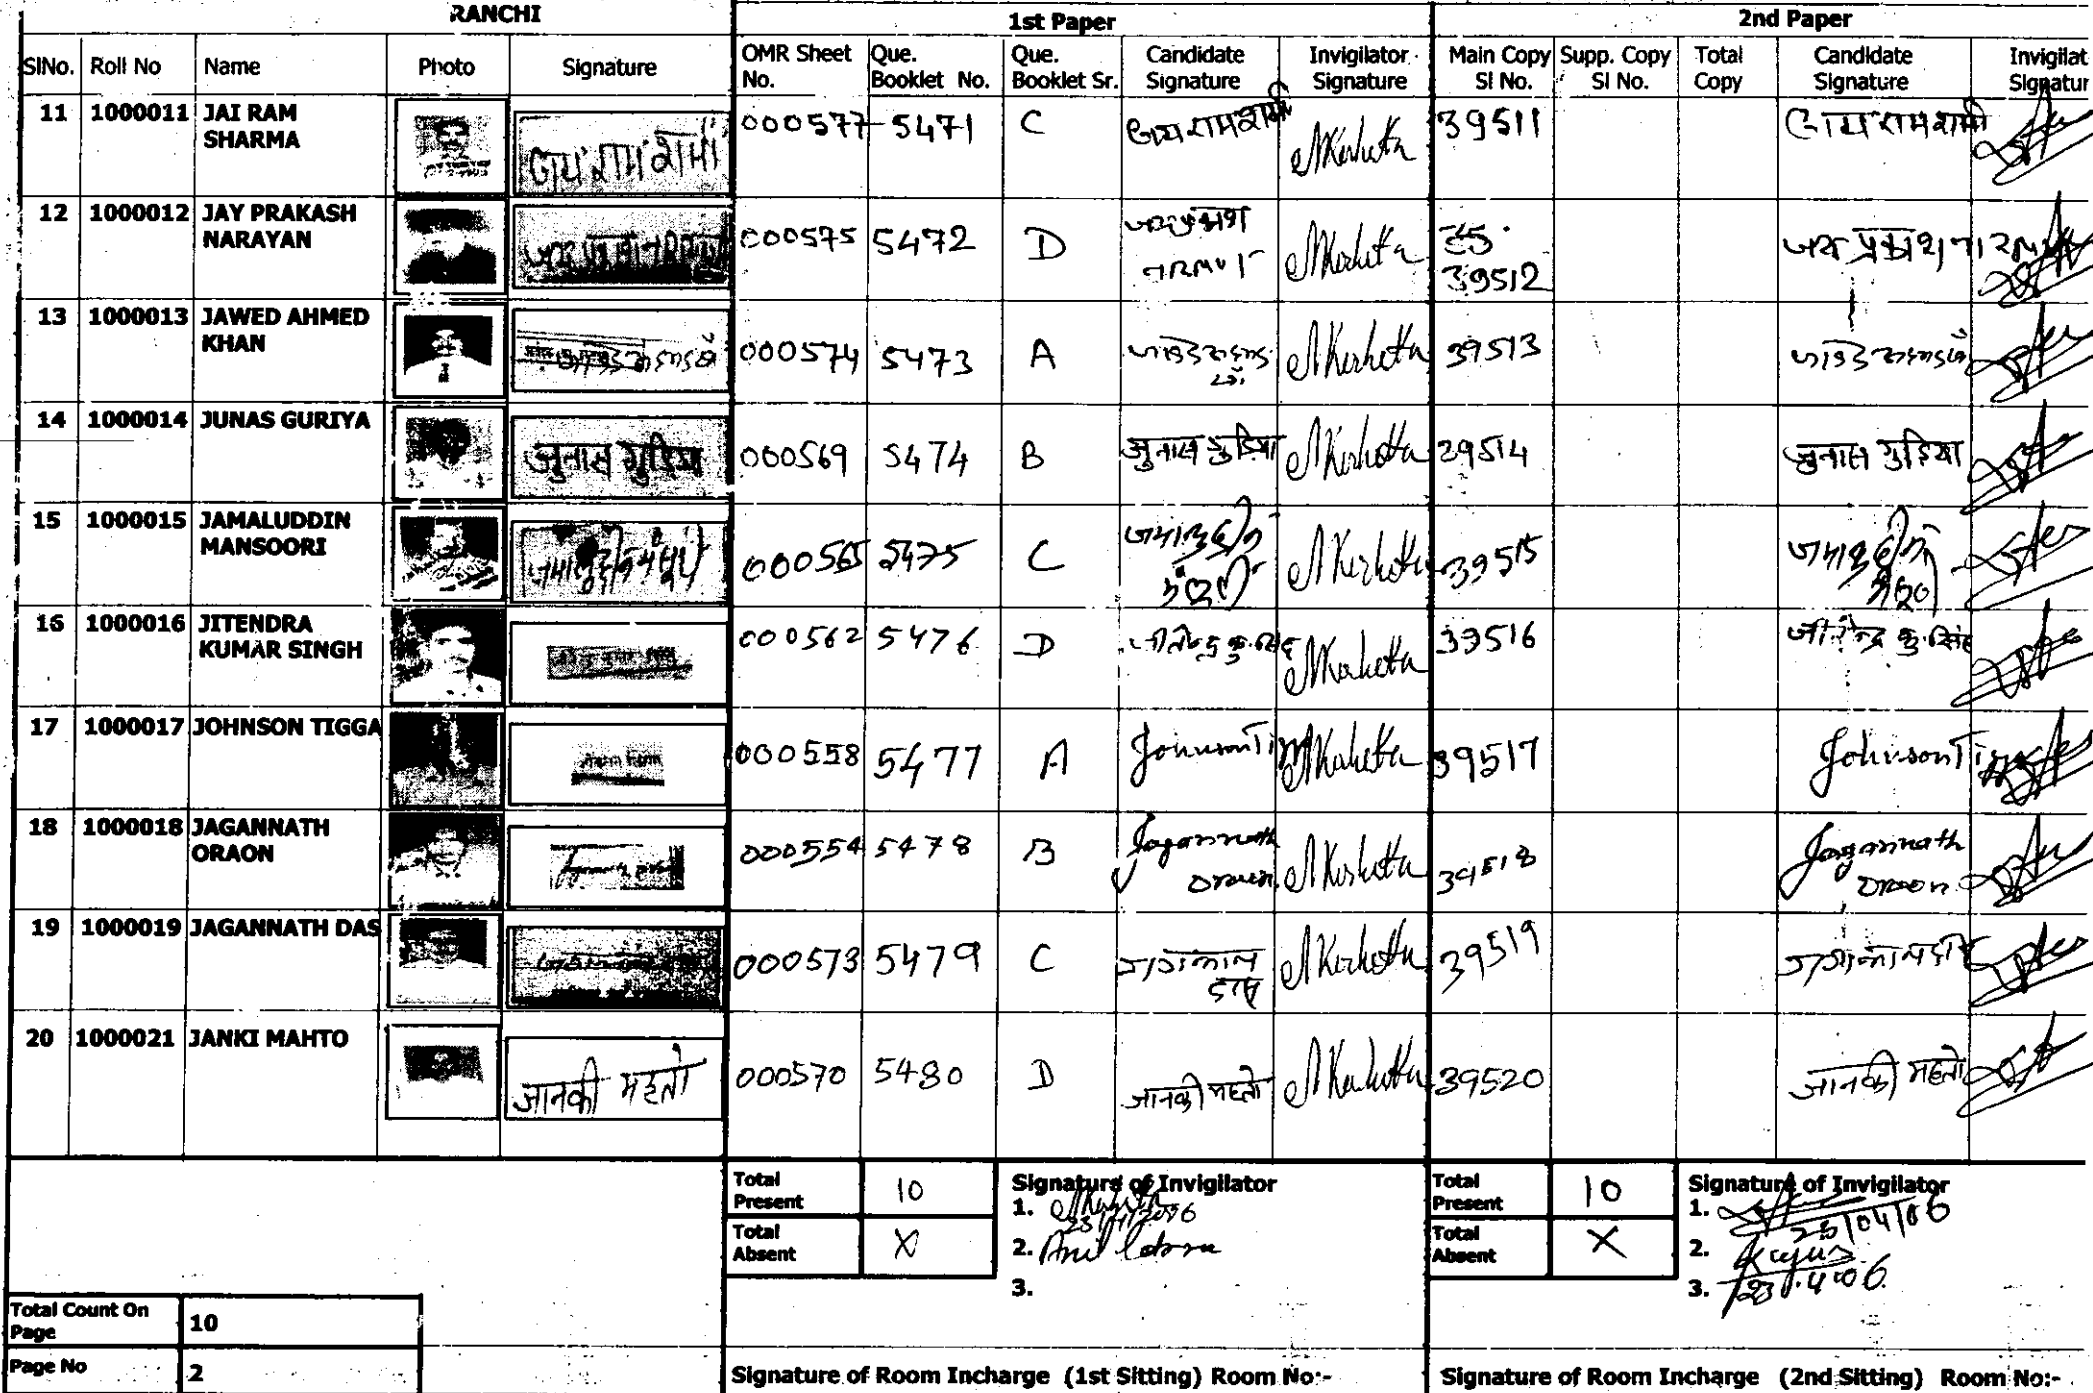 RANCHI
1st Paper
2nd Paper
SlNo. Roll No Name Photo Signature OMR Sheet No. Que. Booklet No. Que. Booklet Sr. Candidate Signature Invigilator Signature Main Copy Sl No. Supp. Copy Sl No. Total Copy Candidate Signature Invigilat Signatur
11 1000011 JAI RAM SHARMA जय राम शर्मा 000577 5471 C जय राम शर्मा AKerketta 39511 जय राम शर्मा
12 1000012 JAY PRAKASH NARAYAN 000575 5472 D जय प्रकाश नारायण AKerketta 39512 जय प्रकाश नारायण
13 1000013 JAWED AHMED KHAN 000574 5473 A AKerketta 39513
14 1000014 JUNAS GURIYA जुनास गुड़िया 000569 5474 B जुनास गुड़िया AKerketta 29514 जुनास गुड़िया
15 1000015 JAMALUDDIN MANSOORI 000565 5475 C AKerketta 39515
16 1000016 JITENDRA KUMAR SINGH 000562 5476 D AKerketta 39516 जीतेन्द्र कु. सिंह
17 1000017 JOHNSON TIGGA 000558 5477 A Johnson AKerketta 39517 Johnson
18 1000018 JAGANNATH ORAON 000554 5478 B Jagannath Oraon AKerketta 39518 Jagannath Oraon
19 1000019 JAGANNATH DAS 000573 5479 C AKerketta 39519
20 1000021 JANKI MAHTO जानकी महतो 000570 5480 D जानकी महतो AKerketta 39520 जानकी महतो
Total Present 10 Signature of Invigilator Total Present 10 Signature of Invigilator
1. AKerketta 1. 23/04/06
Total Absent X 2. Anil Total Absent X 2.
3. 3. 23.4.06
Total Count On Page 10
Page No 2 Signature of Room Incharge (1st Sitting) Room No:- Signature of Room Incharge (2nd Sitting) Room No:-